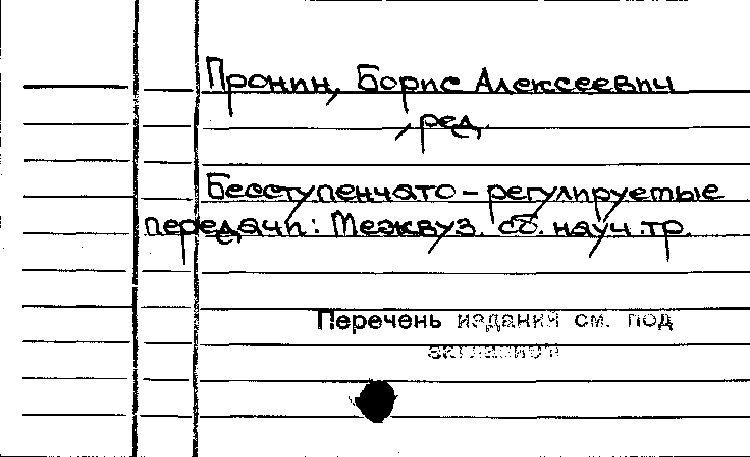 Пронин, Борис Алексеевич
, ред.
Бесступенчато – регулируемые
передачи: Межвуз. сб. науч. тр.
Перечень издания см. под
заглавием